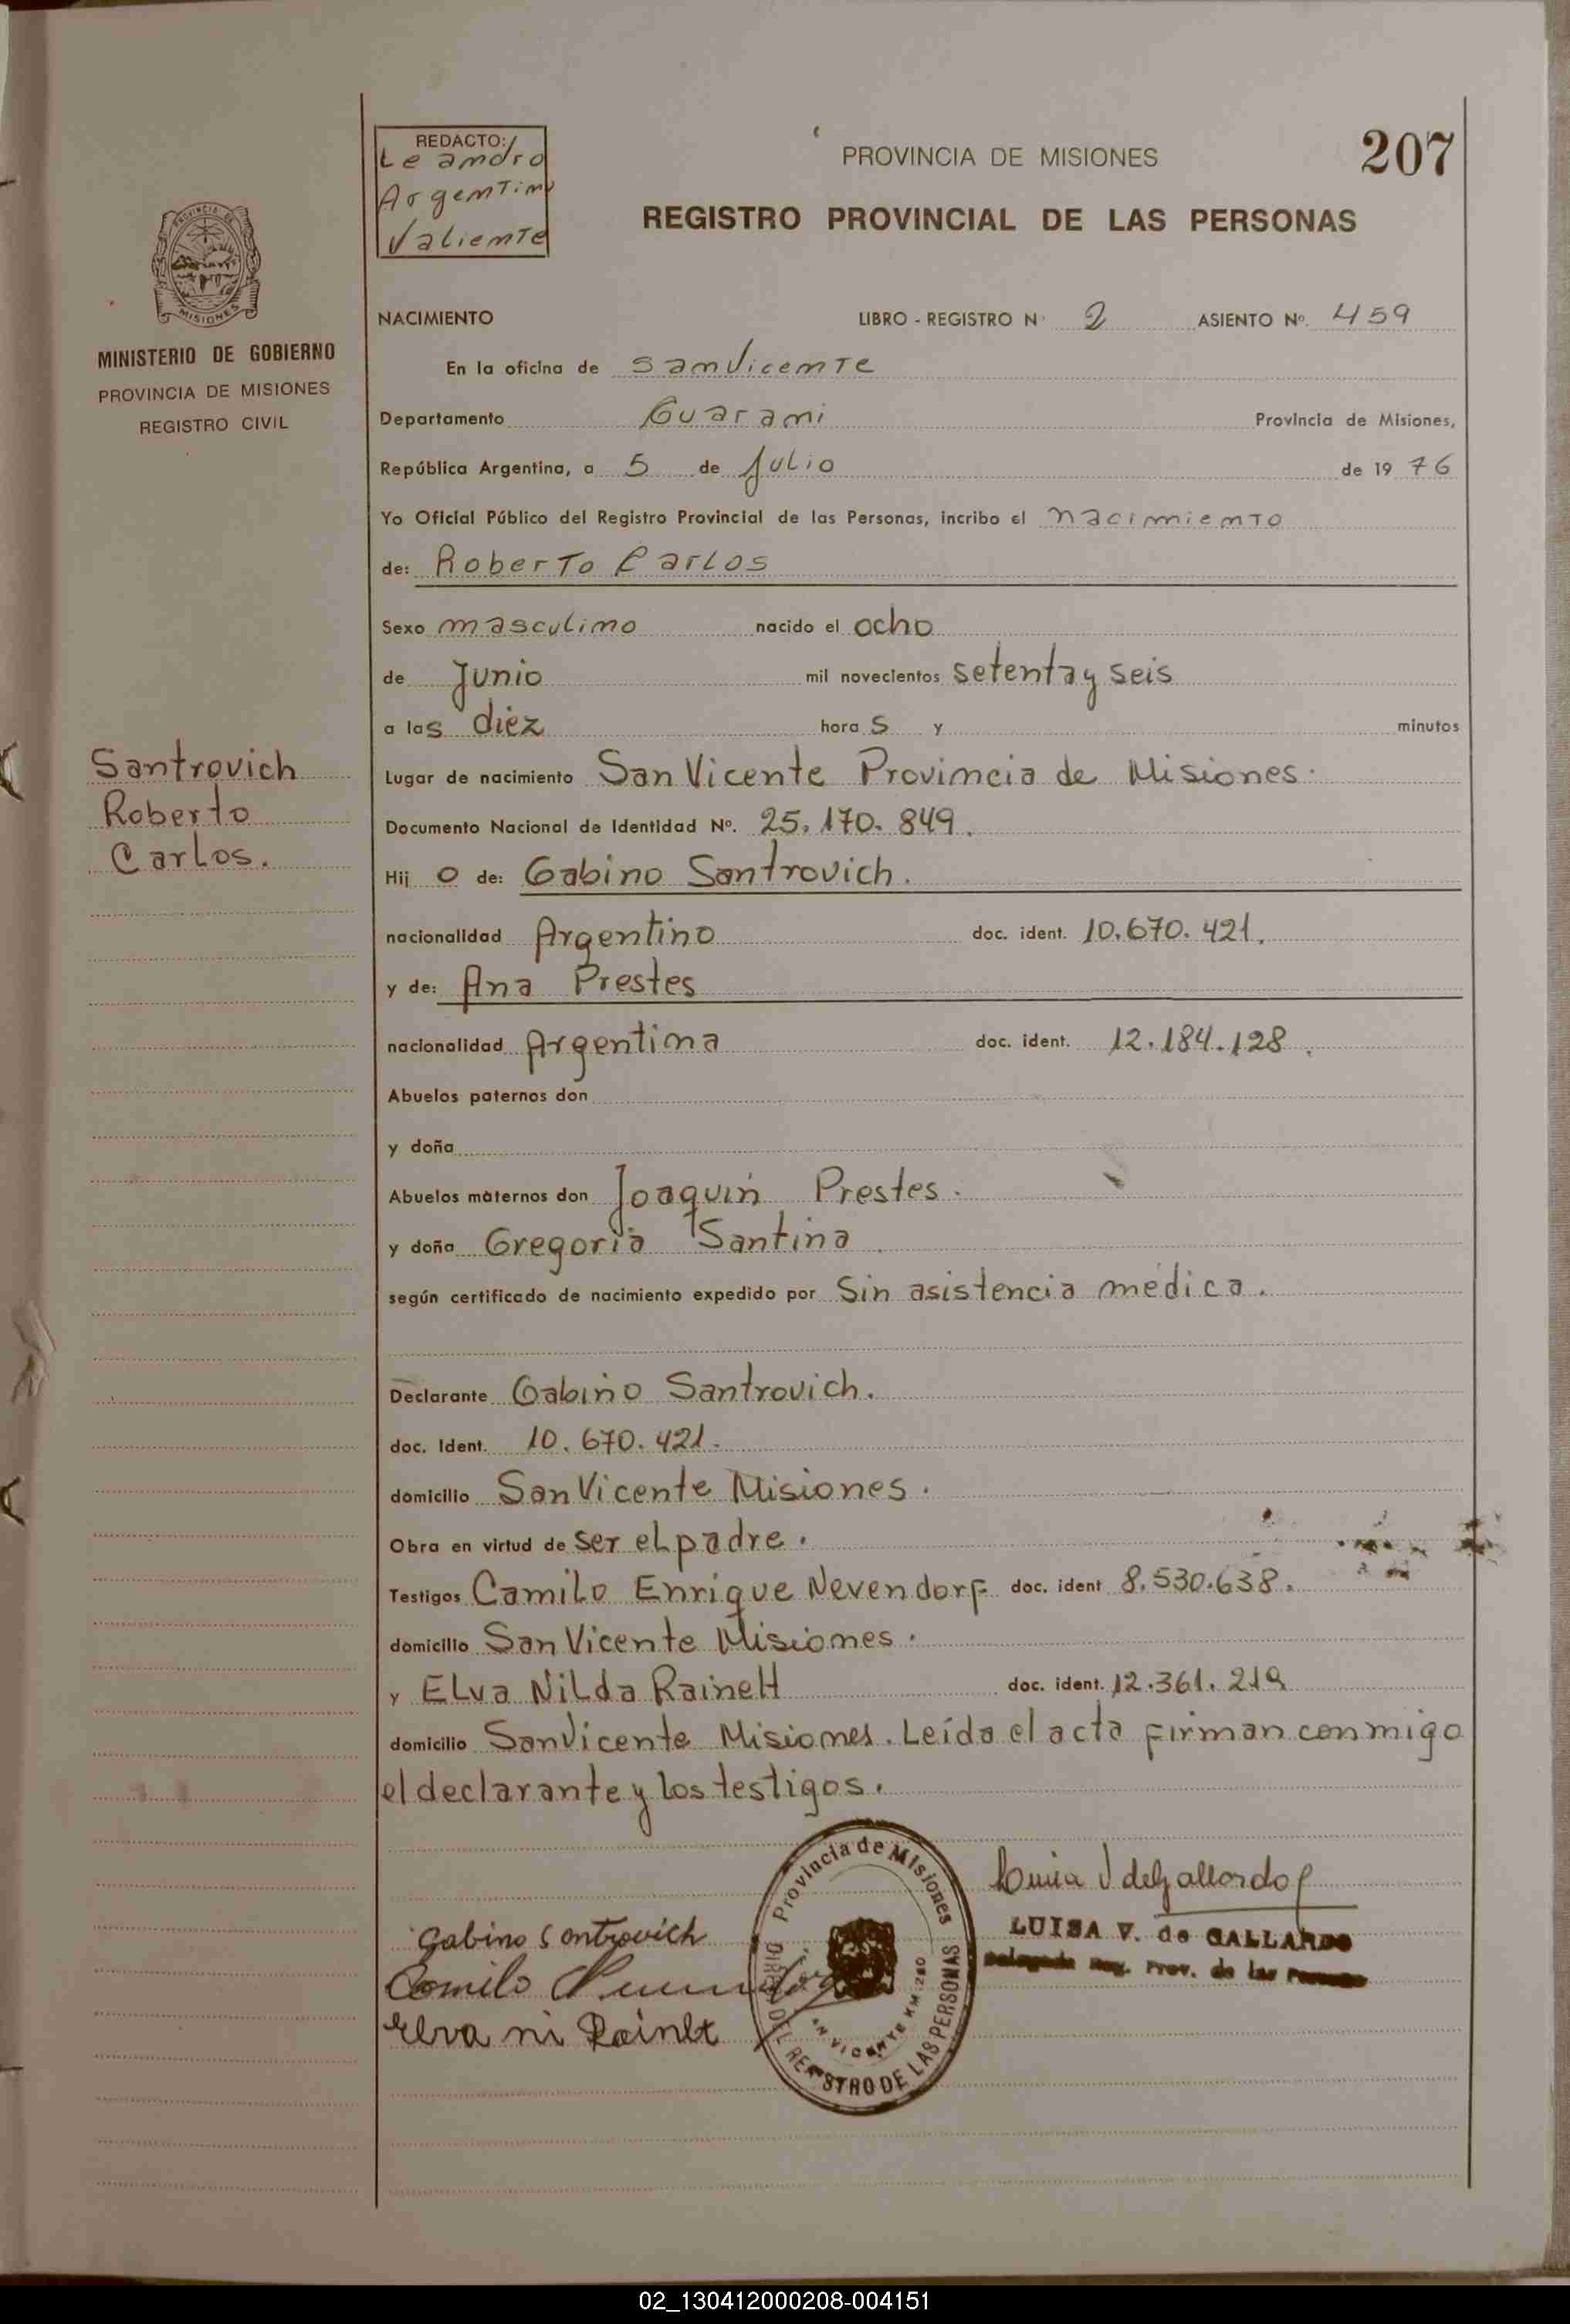 207
REDACTO:
Leandro
Argentino
Valiente
PROVINCIA DE MISIONES
REGISTRO PROVINCIAL DE LAS PERSONAS
PROVINCIA DE
MISIONES
MINISTERIO DE GOBIERNO
PROVINCIA DE MISIONES
REGISTRO CIVIL
NACIMIENTO LIBRO - REGISTRO Nº 2 ASIENTO Nº. 459
En la oficina de San Vicente
Departamento Guarani Provincia de Misiones,
República Argentina, a 5 de Julio de 19 76
Yo Oficial Público del Registro Provincial de las Personas, incribo el nacimiento
de: Roberto Carlos
Sexo masculino nacido el ocho
de Junio mil novecientos setenta y seis
a las diez horas y minutos
Santrovich
Roberto
Carlos.
Lugar de nacimiento San Vicente Provincia de Misiones.
Documento Nacional de Identidad Nº. 25.170.849.
Hij o de: Gabino Santrovich.
nacionalidad Argentino doc. ident. 10.670.421.
y de: Ana Prestes
nacionalidad Argentina doc. ident. 12.184.128.
Abuelos paternos don
y doña
Abuelos maternos don Joaquin Prestes.
y doña Gregoria Santina
según certificado de nacimiento expedido por Sin asistencia médica.
Declarante Gabino Santrovich.
doc. Ident. 10.670.421.
domicilio San Vicente Misiones.
Obra en virtud de ser el padre.
Testigos Camilo Enrique Nevendorf doc. ident 8.530.638.
domicilio San Vicente Misiones.
y Elva Nilda Rainelt doc. ident. 12.361.219
domicilio San Vicente Misiones. Leída el acta firman conmigo
el declarante y los testigos.
Gabino Santrovich
Camilo
Elva ni Rainelt
Provincia de Misiones
DEL REGISTRO DE LAS PERSONAS
VICENTE KM. 280
LUISA V. de GALLARDO
Delegada Reg. Prov. de las Personas
02_130412000208-004151